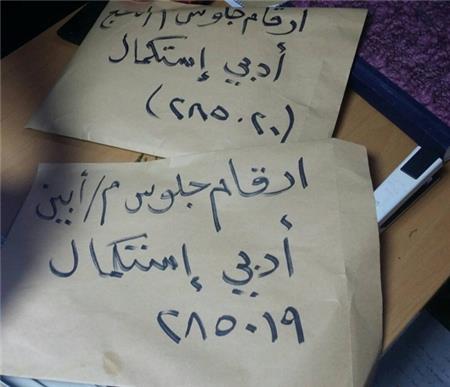 ارقام جلوس
أدبي إستكمال
(٢٨٥٠٢٠)
ارقام جلوس م/أبين
أدبي إستكمال
٢٨٥٠١٩